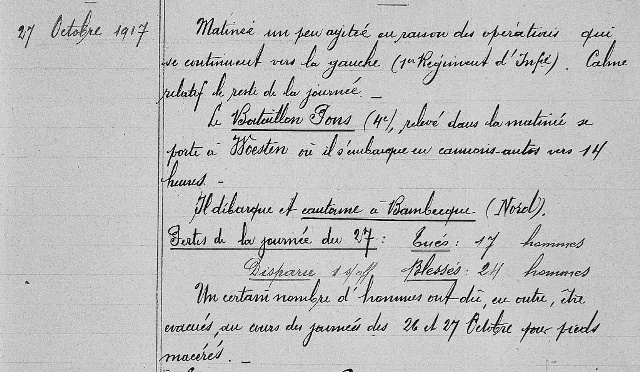 27 Octobre 1917
Matinée un peu agitée en raison des opérations qui
se continuent vers la gauche (1er Régiment d'Infie). Calme
relatif le reste de la journée. _
Le Bataillon Pons (4e), relevé dans la matinée se
porte à Woesten où il s'embarque en camions-autos vers 14
heures. _
Il débarque et cantonne à Bambecque (Nord).
Pertes de la journée du 27 : Tués : 17 hommes
Disparu 1 s/off Blessés : 24 hommes
Un certain nombre d'hommes ont dû, en outre, être
évacués, au cours des journées des 26 et 27 Octobre pour pieds
macérés. _